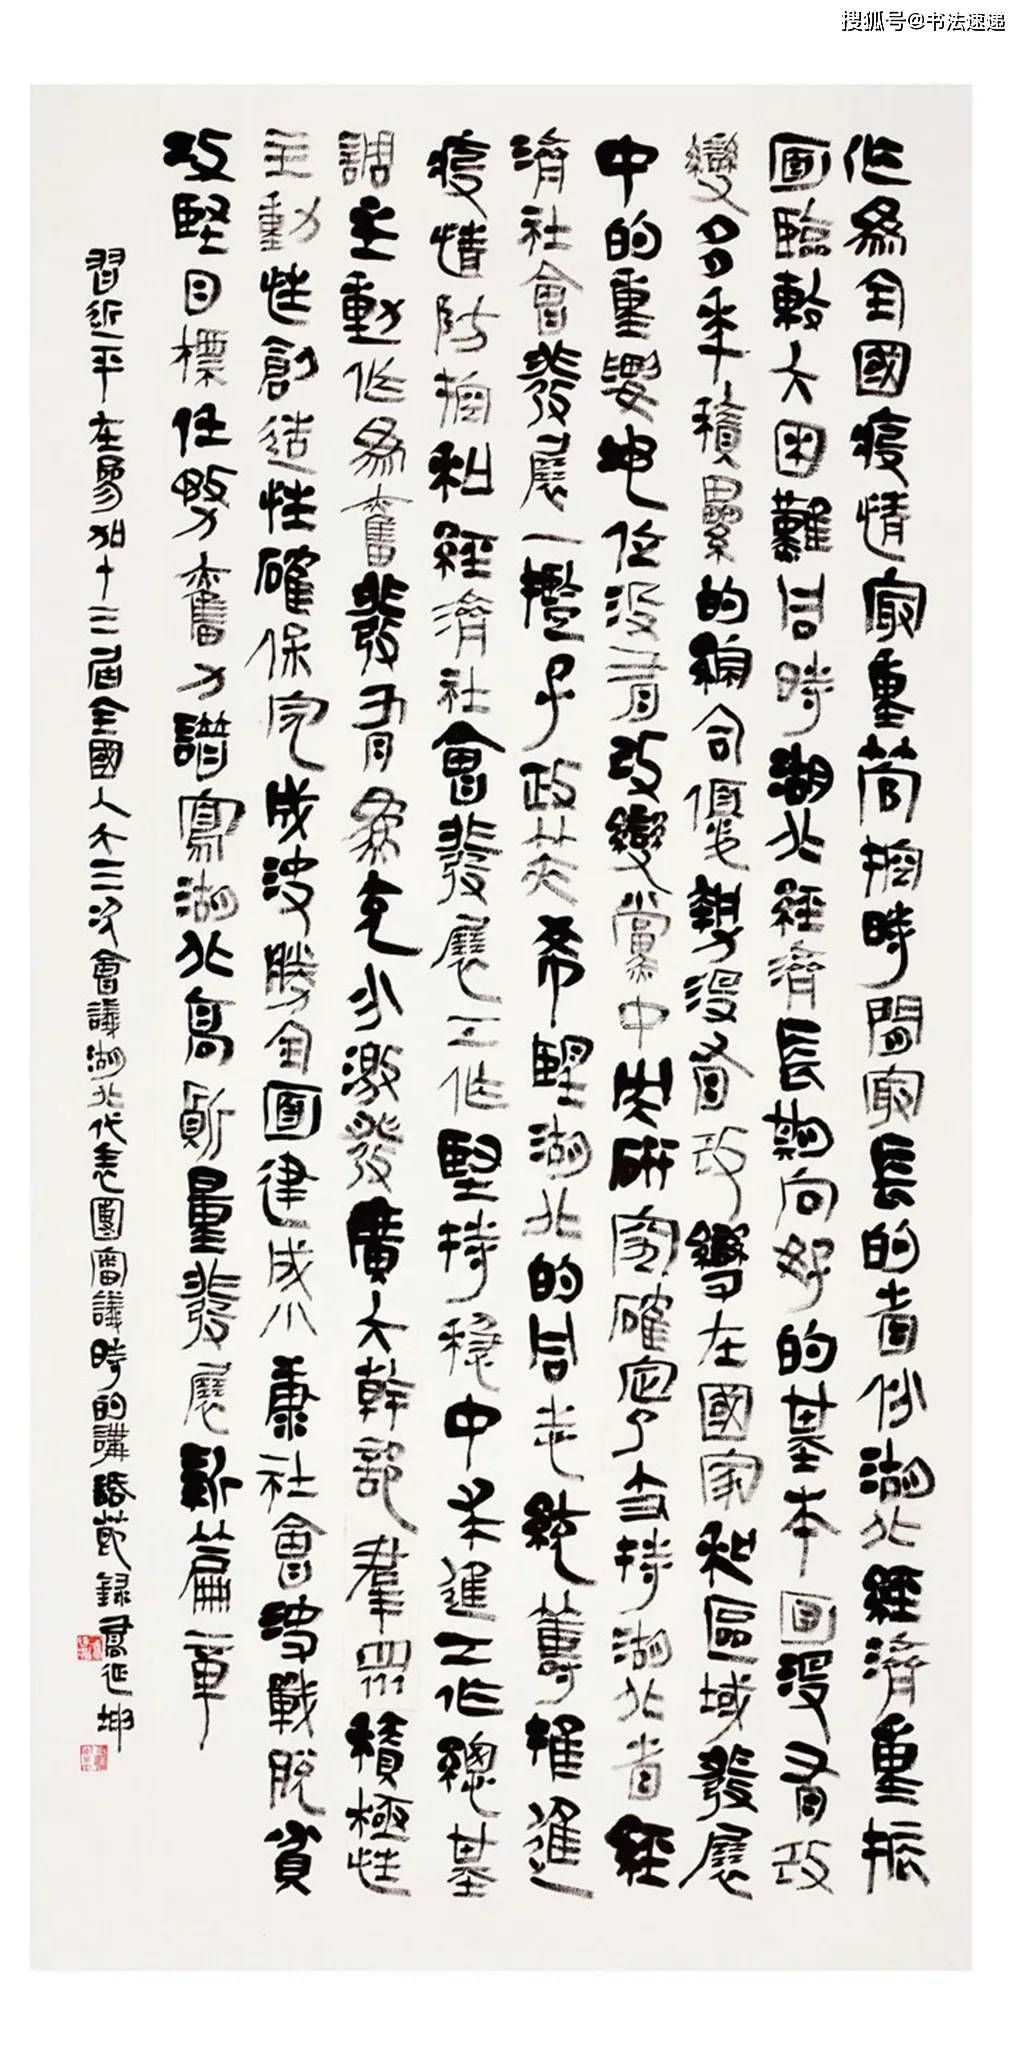 搜狐号@书法速递
作為全國疫情最重管控時間最長的省份湖北經濟重振
面臨較大困難同時湖北經濟長期向好的基本面沒有改
變多年積累的綜合優勢沒有改變在國家和區域發展
中的重要地位沒有改變黨中央研究確定了支持湖北省經
濟社會發展一攬子政策希望湖北的同志統籌推進
疫情防控和經濟社會發展工作堅持穩中求進工作總基
調主動作為奮發有為充分激發廣大幹部群眾積極性
主動性創造性確保完成決勝全面建成小康社會決戰脫貧
攻堅目標任務奮力譜寫湖北高質量發展新篇章
習近平在參加十三屆全國人大三次會議湖北代表團審議時的講話節錄高延坤